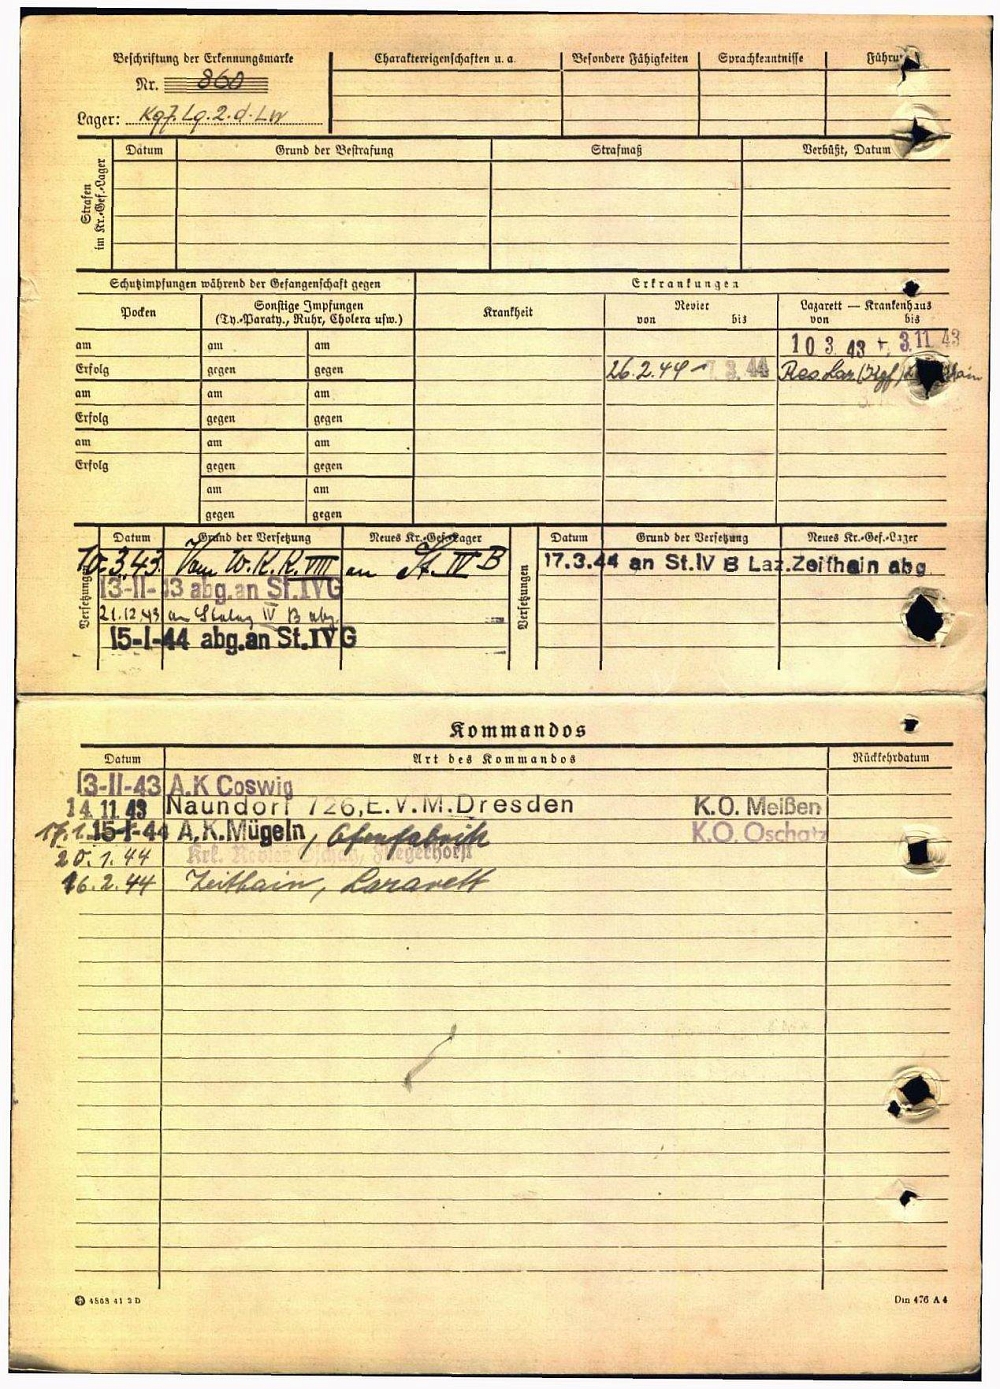 Beschriftung der Erkennungsmarke
Nr. 860
Lager: Kgf. Lg. 2. d. Lw
Charaktereigenschaften u. a.
Besondere Fähigkeiten
Sprachkenntnisse
Strafen im Kr.-Gef.-Lager
Datum
Grund der Bestrafung
Strafmaß
Verbüßt, Datum
Schutzimpfungen während der Gefangenschaft gegen
Erkrankungen
Pocken
Sonstige Impfungen
(Ty.-Paraty., Ruhr, Cholera usw.)
Krankheit
Revier
von bis
Lazarett — Krankenhaus
von bis
am am am
10 3. 43 3. 11. 43
Erfolg gegen gegen
26.2.44 - 3. 44 Res. Laz. (Kgf)
am am am
Erfolg gegen gegen
am am am
Erfolg gegen gegen
am am
gegen gegen
Versetzungen
Datum Grund der Versetzung Neues Kr.-Gef.-Lager
10.3.43. Vom W.K.K. VIII an St. IV B
13-11-43 abg. an St. IVG
21.12.43 an Stalag IV B abg.
15-1-44 abg. an St. IVG
Versetzungen
Datum Grund der Versetzung Neues Kr.-Gef.-Lager
17.3.44 an St. IV B Laz. Zeithain abg
Kommandos
Datum Art des Kommandos Rückkehrdatum
13-11-43 A.K Coswig
14. 11. 43 Naundorf 726, E.V.M. Dresden K.O. Meißen
17.1. 15-1-44 A.K. Mügeln, Ofenfabrik K.O. Oschatz
20. 1. 44 Krk. Revier Oschatz, Fliegerhorst
16. 2. 44 Zeithain, Lazarett
4868 41 2 D
Din 476 A 4